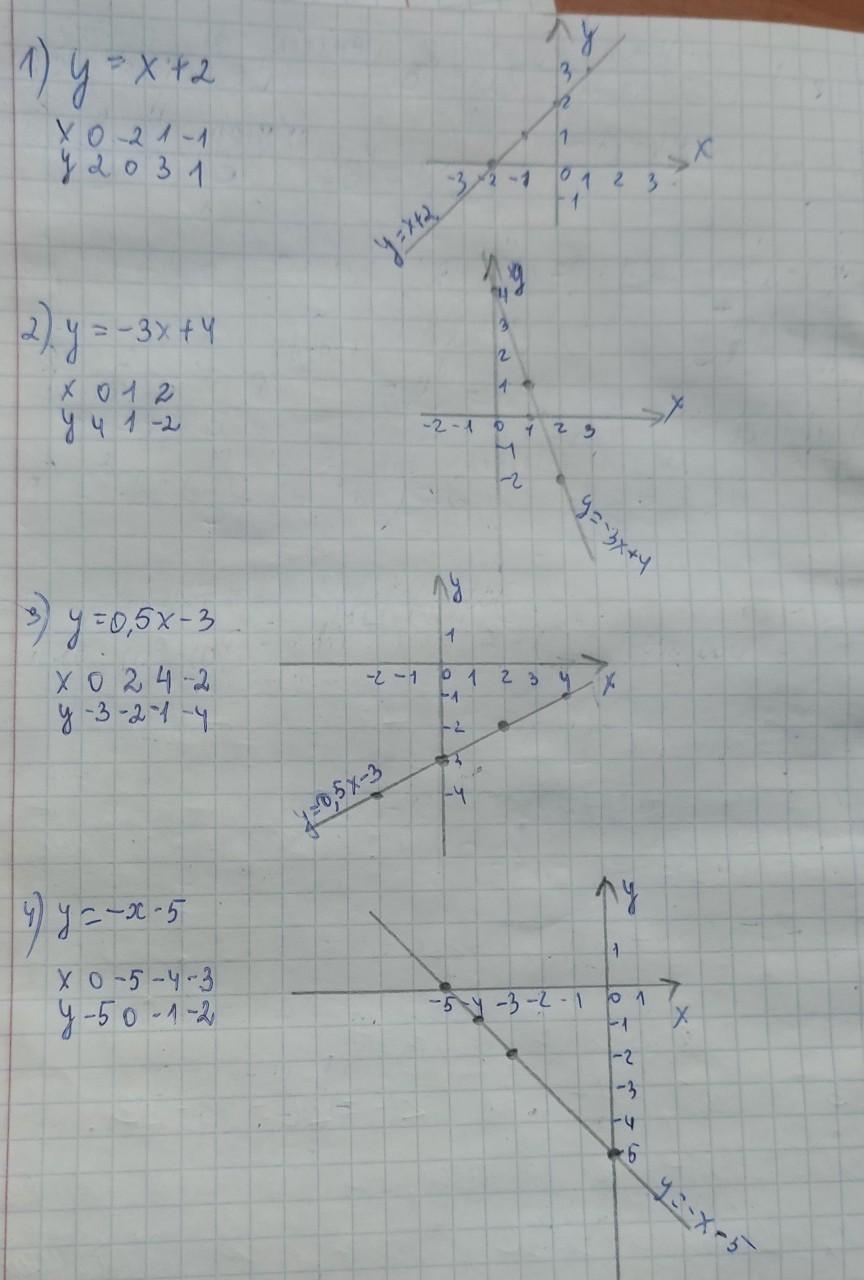 1) y = x+2
x 0 -2 1 -1
y 2 0 3 1
y
3
2
1
-3 -2 -1 0 1 2 3
x
-1
y=x+2
2) y = -3x+4
x 0 1 2
y 4 1 -2
y
4
3
2
1
-2 -1 0 1 2 3
x
-1
-2
y=-3x+4
3) y=0,5x-3
x 0 2 4 -2
y -3 -2 -1 -4
y
1
-2 -1 0 1 2 3 4
x
-1
-2
-3
-4
y=0,5x-3
4) y=-x-5
x 0 -5 -4 -3
y -5 0 -1 -2
y
1
-5 -4 -3 -2 -1 0 1
x
-1
-2
-3
-4
-5
y=-x-5